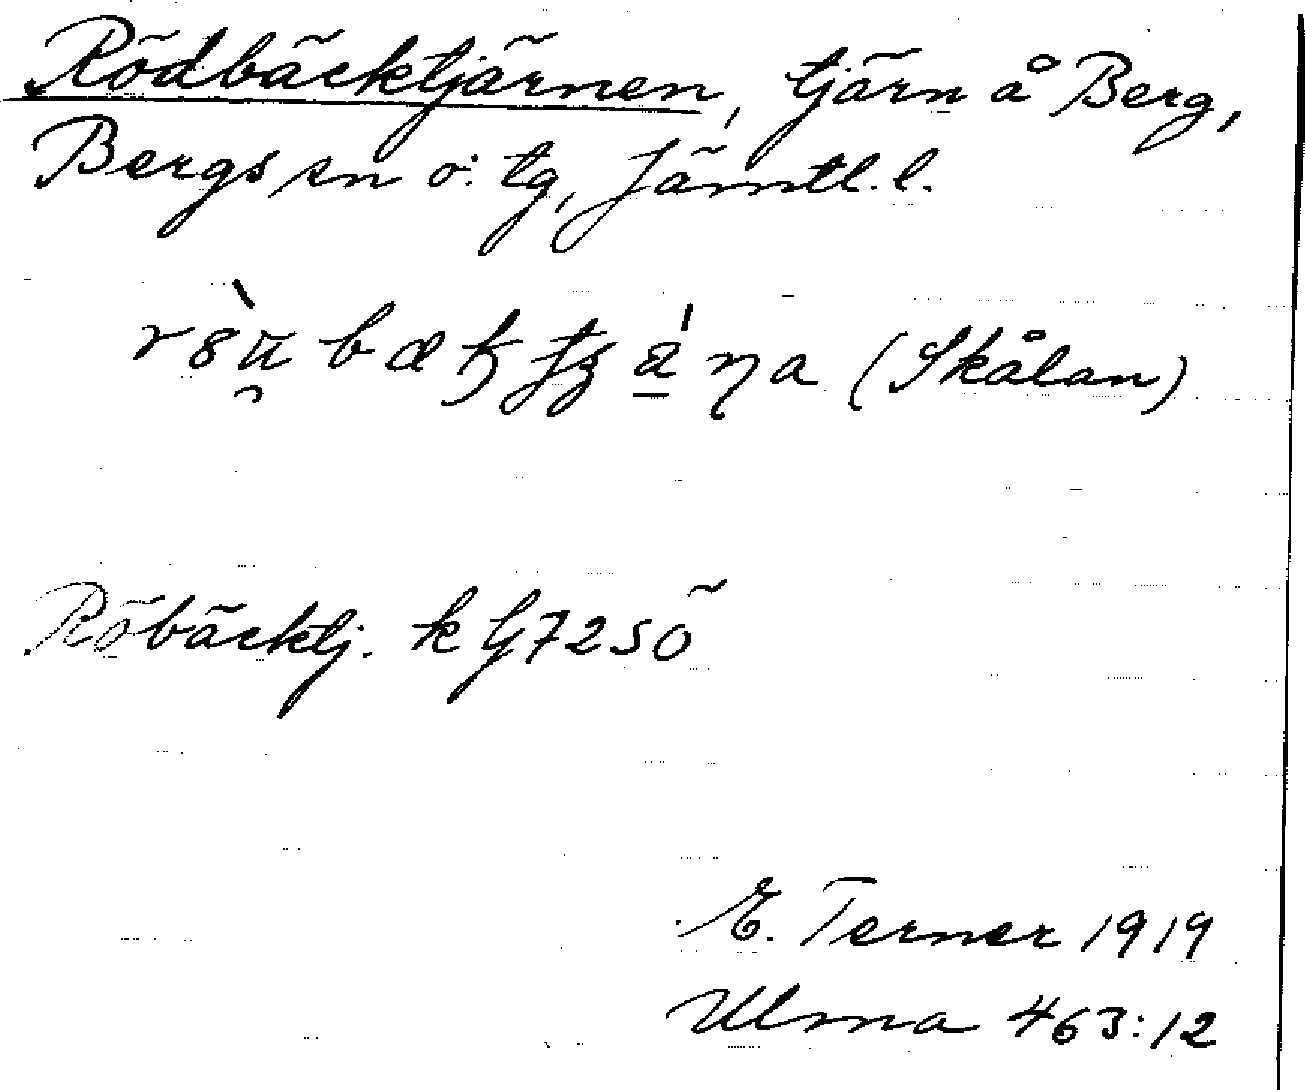 Rödbäcktjärnen, tjärn å Berg,
Bergs sn o. tg, Jämtl. l.
(Skålan)
Röbäcktj. k G72SÖ
E. Terner 1919
Ulma 463:12